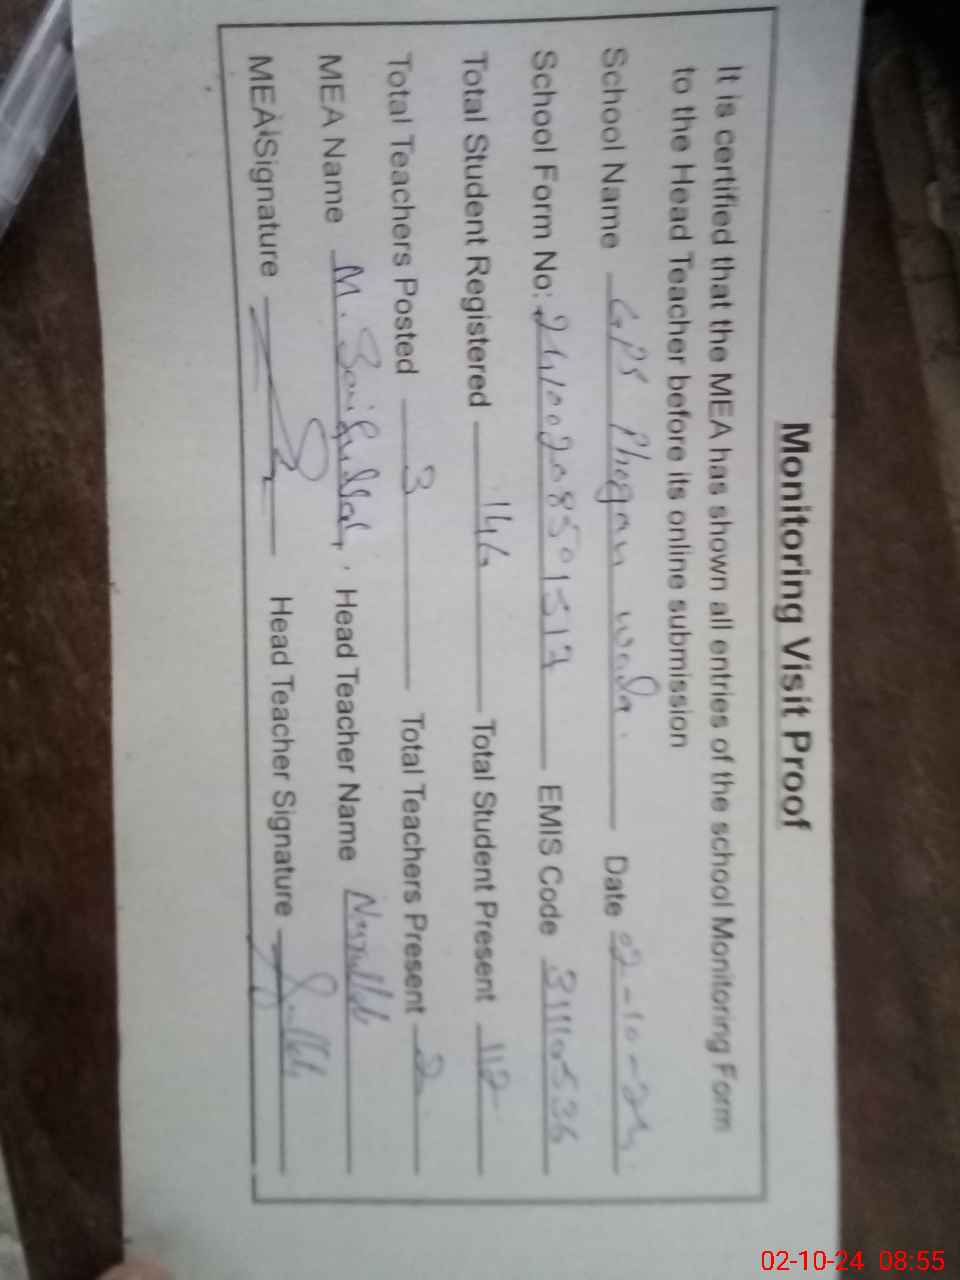 Monitoring Visit Proof
It is certified that the MEA has shown all entries of the school Monitoring Form
to the Head Teacher before its online submission
School Name GPS Phogan wada. Date 02-10-24.
School Form No: 24100208501517 EMIS Code 31110536
Total Student Registered 146 Total Student Present 112
Total Teachers Posted 3 Total Teachers Present 2
MEA Name M. Head Teacher Name
MEA Signature Head Teacher Signature
02-10-24 08:55